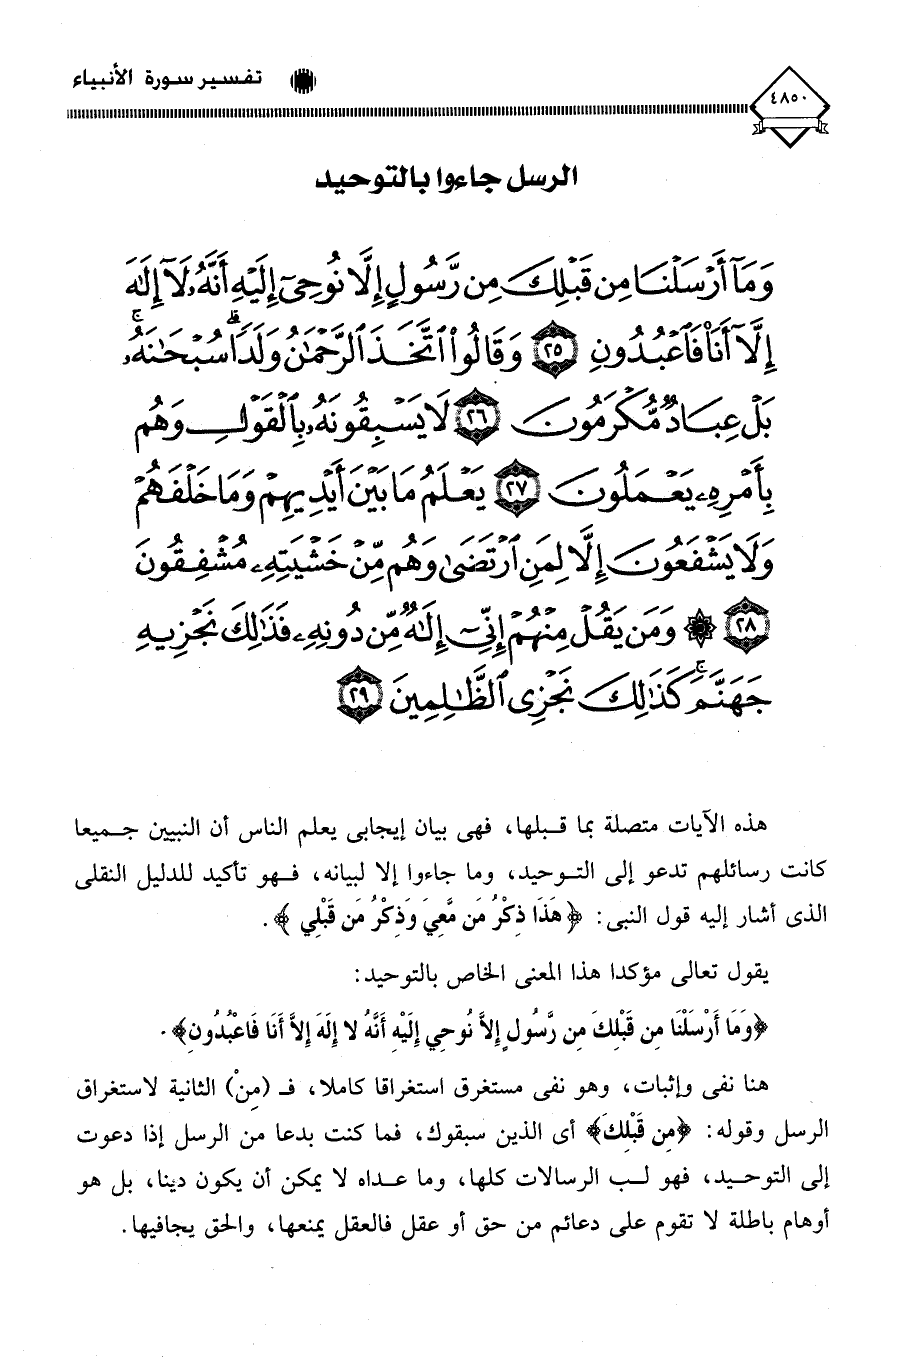 تفسير سورة الأنبياء
٤٨٥٠
الرسل جاءوا بالتوحيد
وَمَآ أَرْسَلْنَا مِن قَبْلِكَ مِن رَّسُولٍ إِلَّا نُوحِىٓ إِلَيْهِ أَنَّهُۥ لَآ إِلَٰهَ
إِلَّآ أَنَا۠ فَٱعْبُدُونِ ٢٥ وَقَالُوا۟ ٱتَّخَذَ ٱلرَّحْمَٰنُ وَلَدًا ۗ سُبْحَٰنَهُۥ ۚ
بَلْ عِبَادٌ مُّكْرَمُونَ ٢٦ لَا يَسْبِقُونَهُۥ بِٱلْقَوْلِ وَهُم
بِأَمْرِهِۦ يَعْمَلُونَ ٢٧ يَعْلَمُ مَا بَيْنَ أَيْدِيهِمْ وَمَا خَلْفَهُمْ
وَلَا يَشْفَعُونَ إِلَّا لِمَنِ ٱرْتَضَىٰ وَهُم مِّنْ خَشْيَتِهِۦ مُشْفِقُونَ
٢٨ ۞ وَمَن يَقُلْ مِنْهُمْ إِنِّىٓ إِلَٰهٌ مِّن دُونِهِۦ فَذَٰلِكَ نَجْزِيهِ
جَهَنَّمَ ۚ كَذَٰلِكَ نَجْزِى ٱلظَّٰلِمِينَ ٢٩
هذه الآيات متصلة بما قبلها، فهى بيان إيجابى يعلم الناس أن النبيين جميعا
كانت رسائلهم تدعو إلى التوحيد، وما جاءوا إلا لبيانه، فهو تأكيد للدليل النقلى
الذى أشار إليه قول النبى: ﴿هَذَا ذِكْرُ مَن مَّعِيَ وَذِكْرُ مَن قَبْلِي﴾.
يقول تعالى مؤكدا هذا المعنى الخاص بالتوحيد:
﴿وَمَا أَرْسَلْنَا مِن قَبْلِكَ مِن رَّسُولٍ إِلاَّ نُوحِي إِلَيْهِ أَنَّهُ لا إِلَهَ إِلاَّ أَنَا فَاعْبُدُونِ﴾.
هنا نفى وإثبات، وهو نفى مستغرق استغراقا كاملا، فـ (مِنْ) الثانية لاستغراق
الرسل وقوله: ﴿مِن قَبْلِكَ﴾ أى الذين سبقوك، فما كنت بدعا من الرسل إذا دعوت
إلى التوحيد، فهو لب الرسالات كلها، وما عداه لا يمكن أن يكون دينا، بل هو
أوهام باطلة لا تقوم على دعائم من حق أو عقل فالعقل يمنعها، والحق يجافيها.